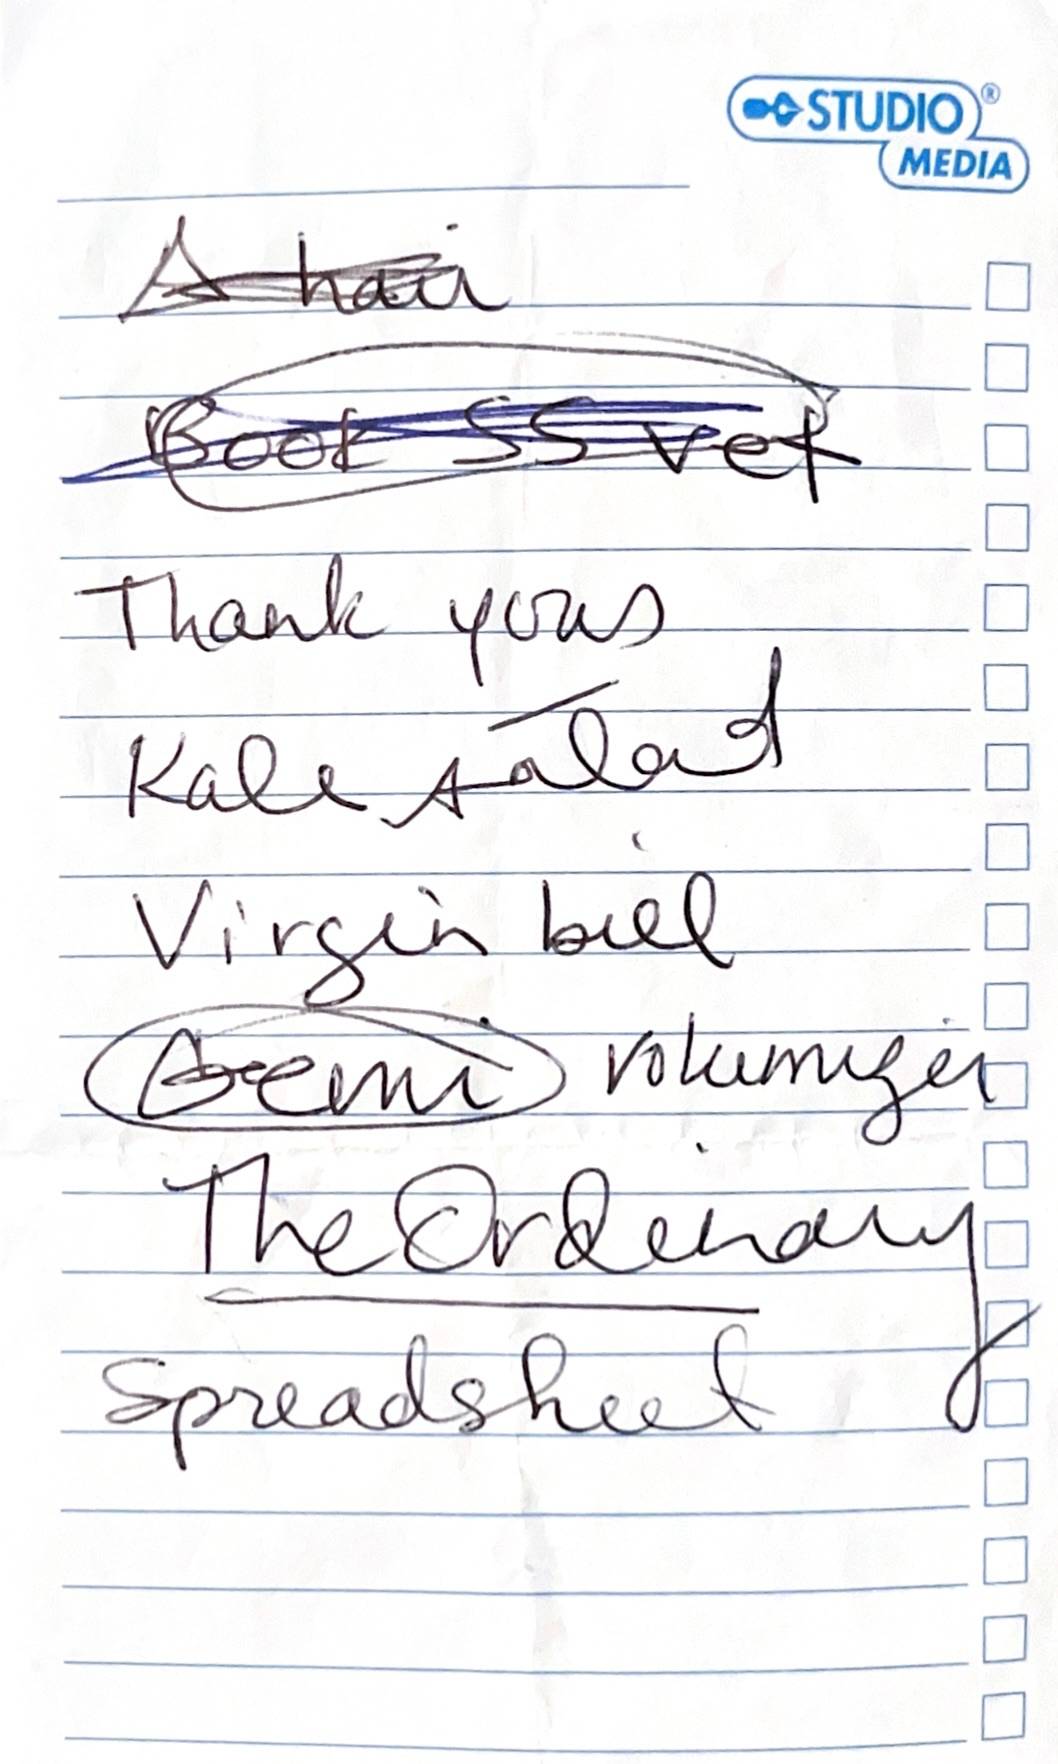 STUDIO®
MEDIA
A hair
Book SS vet
Thank yous
Kale salad
Virgin bill
Gemi volumizer
The Ordinary
Spreadsheet